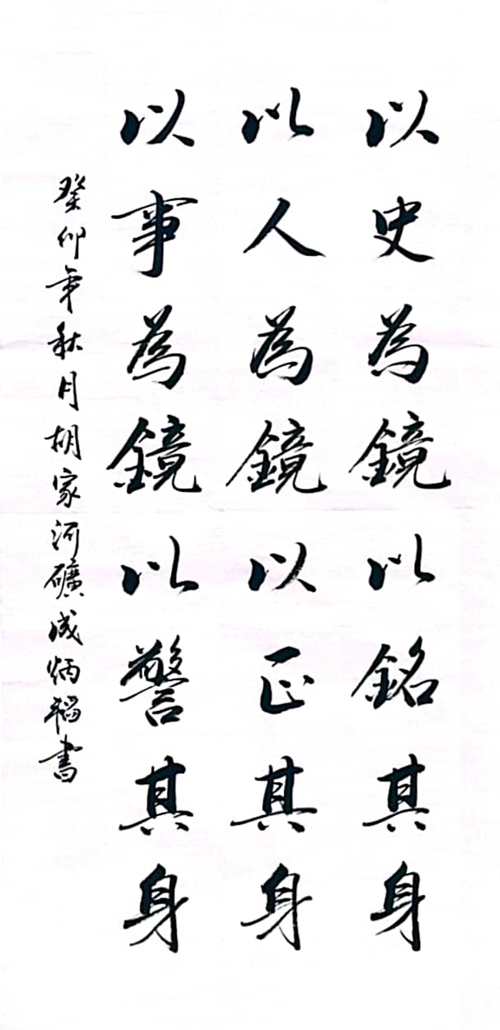 以史為鏡以銘其身
以人為鏡以正其身
以事為鏡以警其身
癸卯年秋月胡家河礦成炳韜書